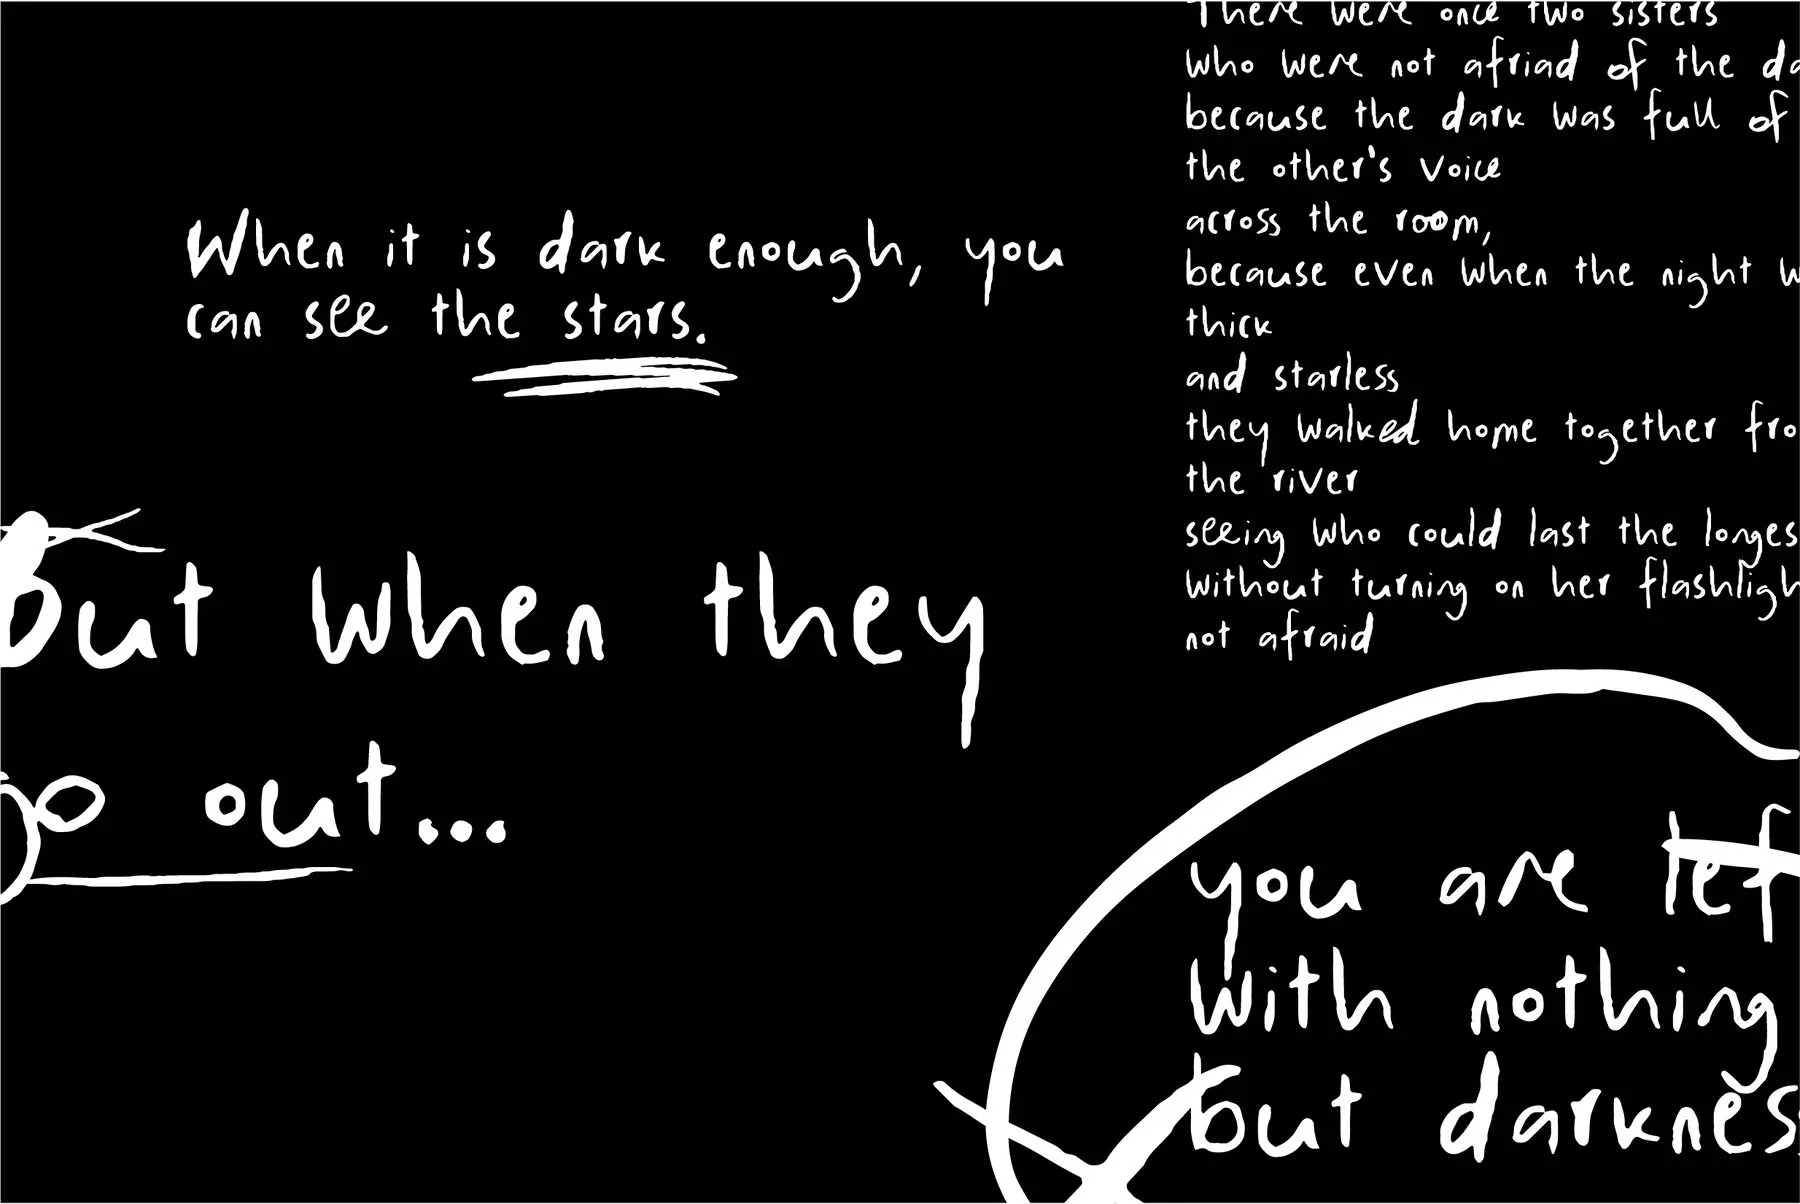 When it is dark enough, you
can see the stars.
but when they
go out...
There were once two sisters
who were not afriad of the
because the dark was full of
the other's voice
across the room,
because even when the night
thick
and starless
they walked home together
the river
seeing who could last the
without turning on her
not afraid
you are
with nothing
but